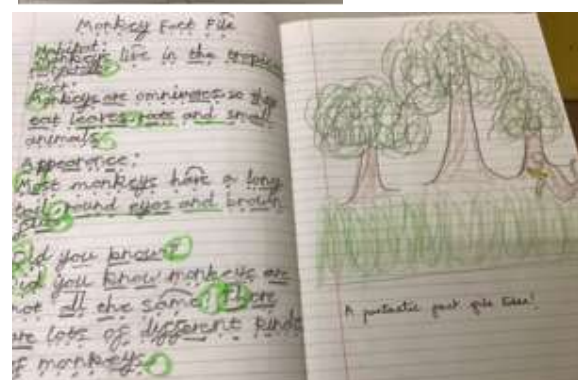 Monkey Fact File
Habitat:
Monkeys live in the tropical
Diet:
Monkeys are omnivores so they
eat leaves, roots and small
animals.
Appearance:
Most monkeys have a long
tail, round eyes and brown
Did you know?
Did you know monkeys are
not all the same! There
are lots of different kinds
of monkeys.
A fantastic fact file